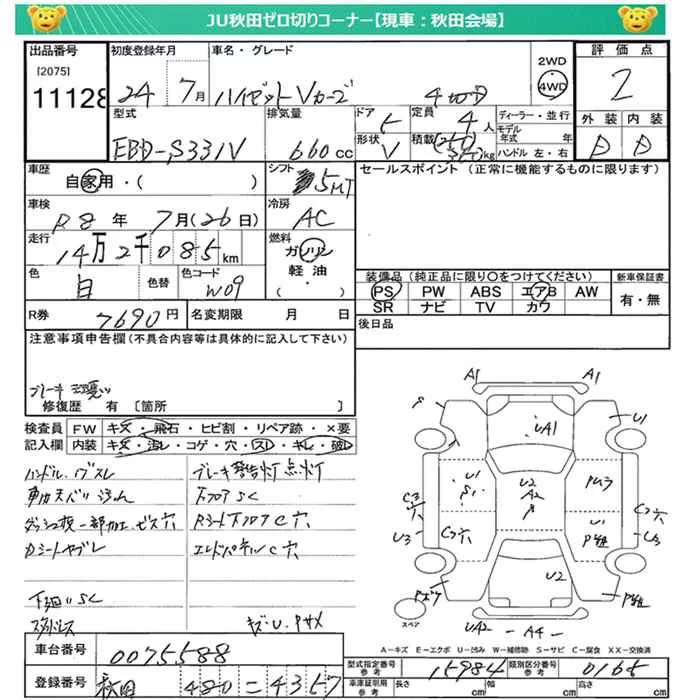 JU秋田ゼロ切りコーナー【現車：秋田会場】
出品番号 初度登録年月 車名・グレード 評価点
[2075]
11128 24 7月 ハイゼットVカーゴ 4切D 2WD 4WD 2
型式 排気量 ドア 定員 ディーラー・並行 外装 内装
EBD-S331V 660cc 4人 モデル年式 年 D D
形状 V 積載 kg ハンドル 左・右
車歴 自家用・( ) シフト 5MT セールスポイント (正常に機能するものに限ります)
車検 R8年 7月(26日) 冷房 AC
走行 14万2千085km 燃料 ガソリン 軽油 ( )
色 白 色替 色コード W09
装備品 (純正品に限り○をつけてください) 新車保証書
PS PW ABS エアB AW 有・無
SR ナビ TV カワ
R券 7690円 名変期限 月 日 後日品
注意事項申告欄 (不具合内容等は具体的に記入して下さい)
修復歴 有 〔箇所 〕
検査員記入欄 FW キズ・飛石・ヒビ割・リペア跡・×要
内装 キズ・汚レ・コゲ・穴・スレ・キレ・破レ
ハンドル スレ ブレーキ警告灯点灯
下フロア SC
ダッシュ板一部加工、ビス穴 Rシート下フロアC穴
Dシートヤブレ エンドパネルC穴
下廻りSC
スタッドレス キズ・U・Pサメ
A1 A1
U1
UA1
U1 S1 U2 A2 P Pムラ
C3穴 C穴
U3 C穴 U1 U3
U2
スペア UA2 A4
A－キズ E－エクボ U－凹み W－補修跡 S－サビ C－腐食 XX－交換済
車台番号 0075588
型式指定番号 参考 15984 類別区分番号 参考 0165
登録番号 秋田 480 = 4357
車庫証明用 参考 長さ cm 幅 cm 高さ cm